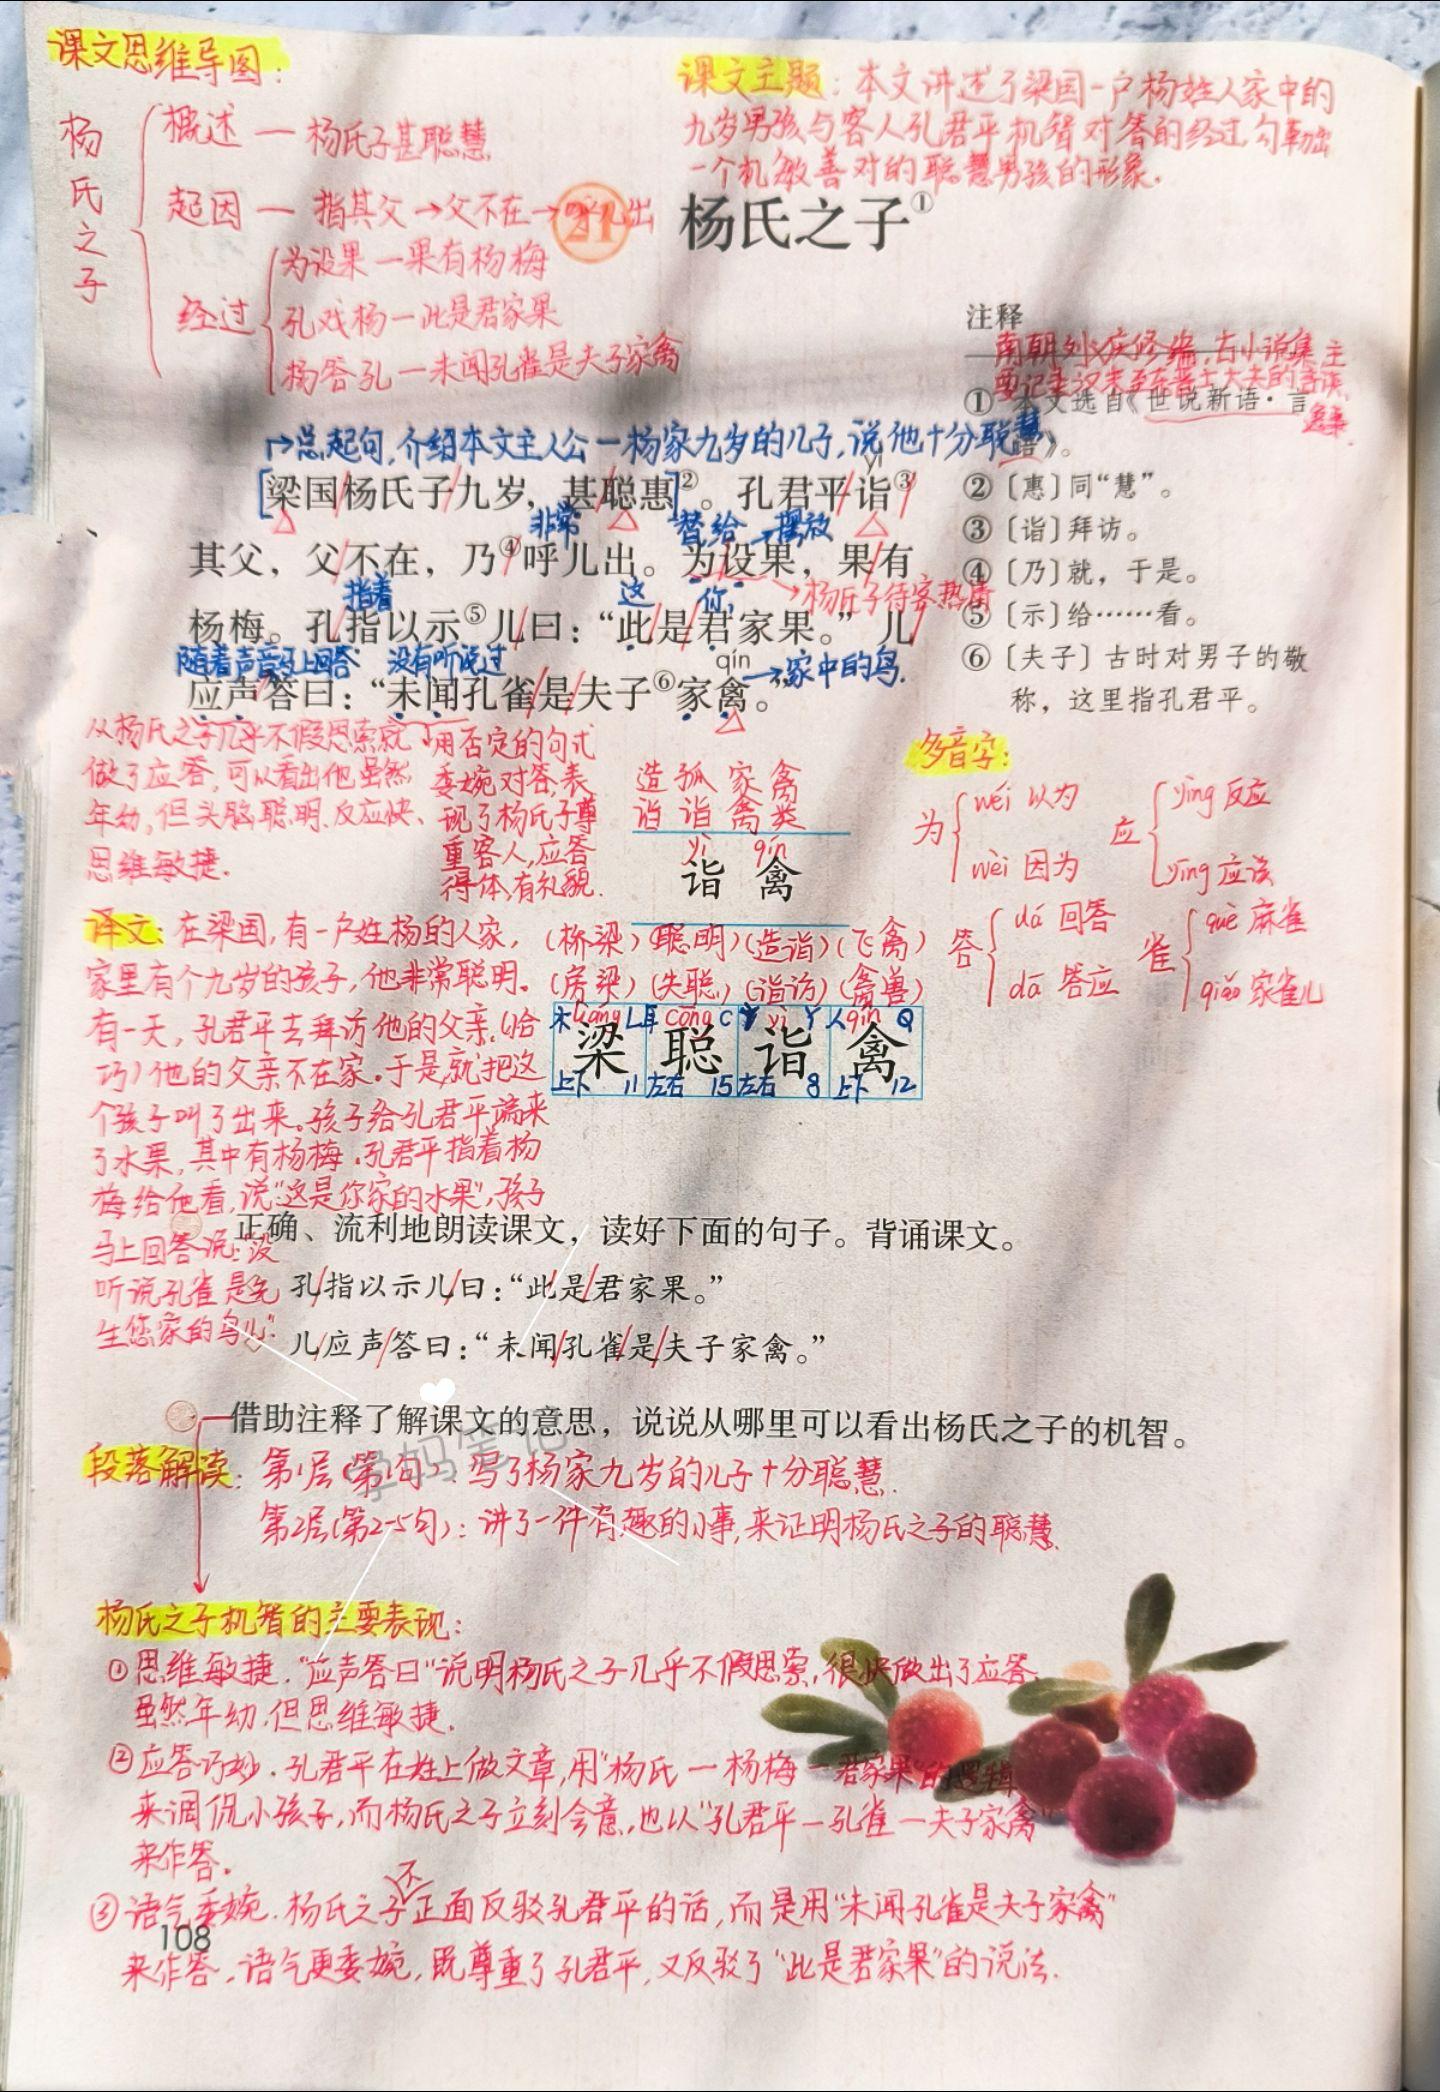 课文思维导图：
杨氏之子
概述 — 杨氏子甚聪慧
起因 — 指其父→父不在→呼儿出
经过
为设果 — 果有杨梅
孔戏杨 — 此是君家果
杨答孔 — 未闻孔雀是夫子家禽
课文主题：本文讲述了梁国一户杨姓人家中的
九岁男孩与客人孔君平机智对答的经过，勾勒出
一个机敏善对的聪慧男孩的形象.
21 杨氏之子①
注释
南朝刘义庆修编,古小说集主
要记录汉末至东晋士大夫的言谈、
逸事.
① 本文选自《世说新语·言
语》。
② 〔惠〕同“慧”。
③ 〔诣〕拜访。
④ 〔乃〕就，于是。
⑤ 〔示〕给……看。
⑥ 〔夫子〕古时对男子的敬
称，这里指孔君平。
→总起句,介绍本文主人公—杨家九岁的儿子,说他十分聪慧
yì
梁国杨氏子九岁，甚聪惠②。孔君平诣③
非常 替,给 →摆放
其父，父不在，乃④呼儿出。为设果，果有
指着 这 你, →杨氏子待客热情
杨梅。孔指以示⑤儿曰：“此是君家果。”儿
随着声音马上回答 没有听说过 qín →家中的鸟.
应声答曰：“未闻孔雀是夫子⑥家禽。”
从杨氏之子几乎不假思索就
做了应答,可以看出他虽然
年幼,但头脑聪明、反应快、
思维敏捷.
用否定的句式
委婉对答,表
现了杨氏子尊
重客人,应答
得体,有礼貌.
造孤家禽
诣诣禽类
yì qín
诣 禽
多音字：
为 wéi 以为 wèi 因为
应 yìng 反应 yīng 应该
答 dá 回答 dā 答应
雀 què 麻雀 qiǎo 家雀儿
(桥梁)(聪明)(造诣)(飞禽)
(房梁)(失聪)(诣访)(禽兽)
木 liáng L 耳 cōng C 讠 yì Y 人 qín Q
梁 聪 诣 禽
上下 11 左右 15 左右 8 上下 12
译文：在梁国,有一户姓杨的人家,
家里有个九岁的孩子,他非常聪明。
有一天,孔君平去拜访他的父亲,(恰
巧)他的父亲不在家.于是,就把这
个孩子叫了出来。孩子给孔君平端来
了水果,其中有杨梅.孔君平指着杨
梅给他看,说“这是你家的水果”,孩子
马上回答说：“没
听说孔雀是先
生您家的鸟儿”.
正确、流利地朗读课文，读好下面的句子。背诵课文。
孔指以示儿曰：“此是君家果。”
儿应声答曰：“未闻孔雀是夫子家禽。”
借助注释了解课文的意思，说说从哪里可以看出杨氏之子的机智。
学妈笔记
段落解读：第1层(第1句)：写了杨家九岁的儿子十分聪慧.
第2层(第2-5句)：讲了一件有趣的小事,来证明杨氏之子的聪慧.
杨氏之子机智的主要表现：
①思维敏捷.“应声答曰”说明杨氏之子几乎不假思索,很快做出了应答.
虽然年幼,但思维敏捷.
②应答巧妙.孔君平在姓上做文章,用“杨氏—杨梅—君家果”的逻辑
来调侃小孩子,而杨氏之子立刻会意,也以“孔君平—孔雀—夫子家禽”
来作答.
③语气委婉.杨氏之子不正面反驳孔君平的话,而是用“未闻孔雀是夫子家禽”
来作答,语气更委婉,既尊重了孔君平,又反驳了“此是君家果”的说法.
108